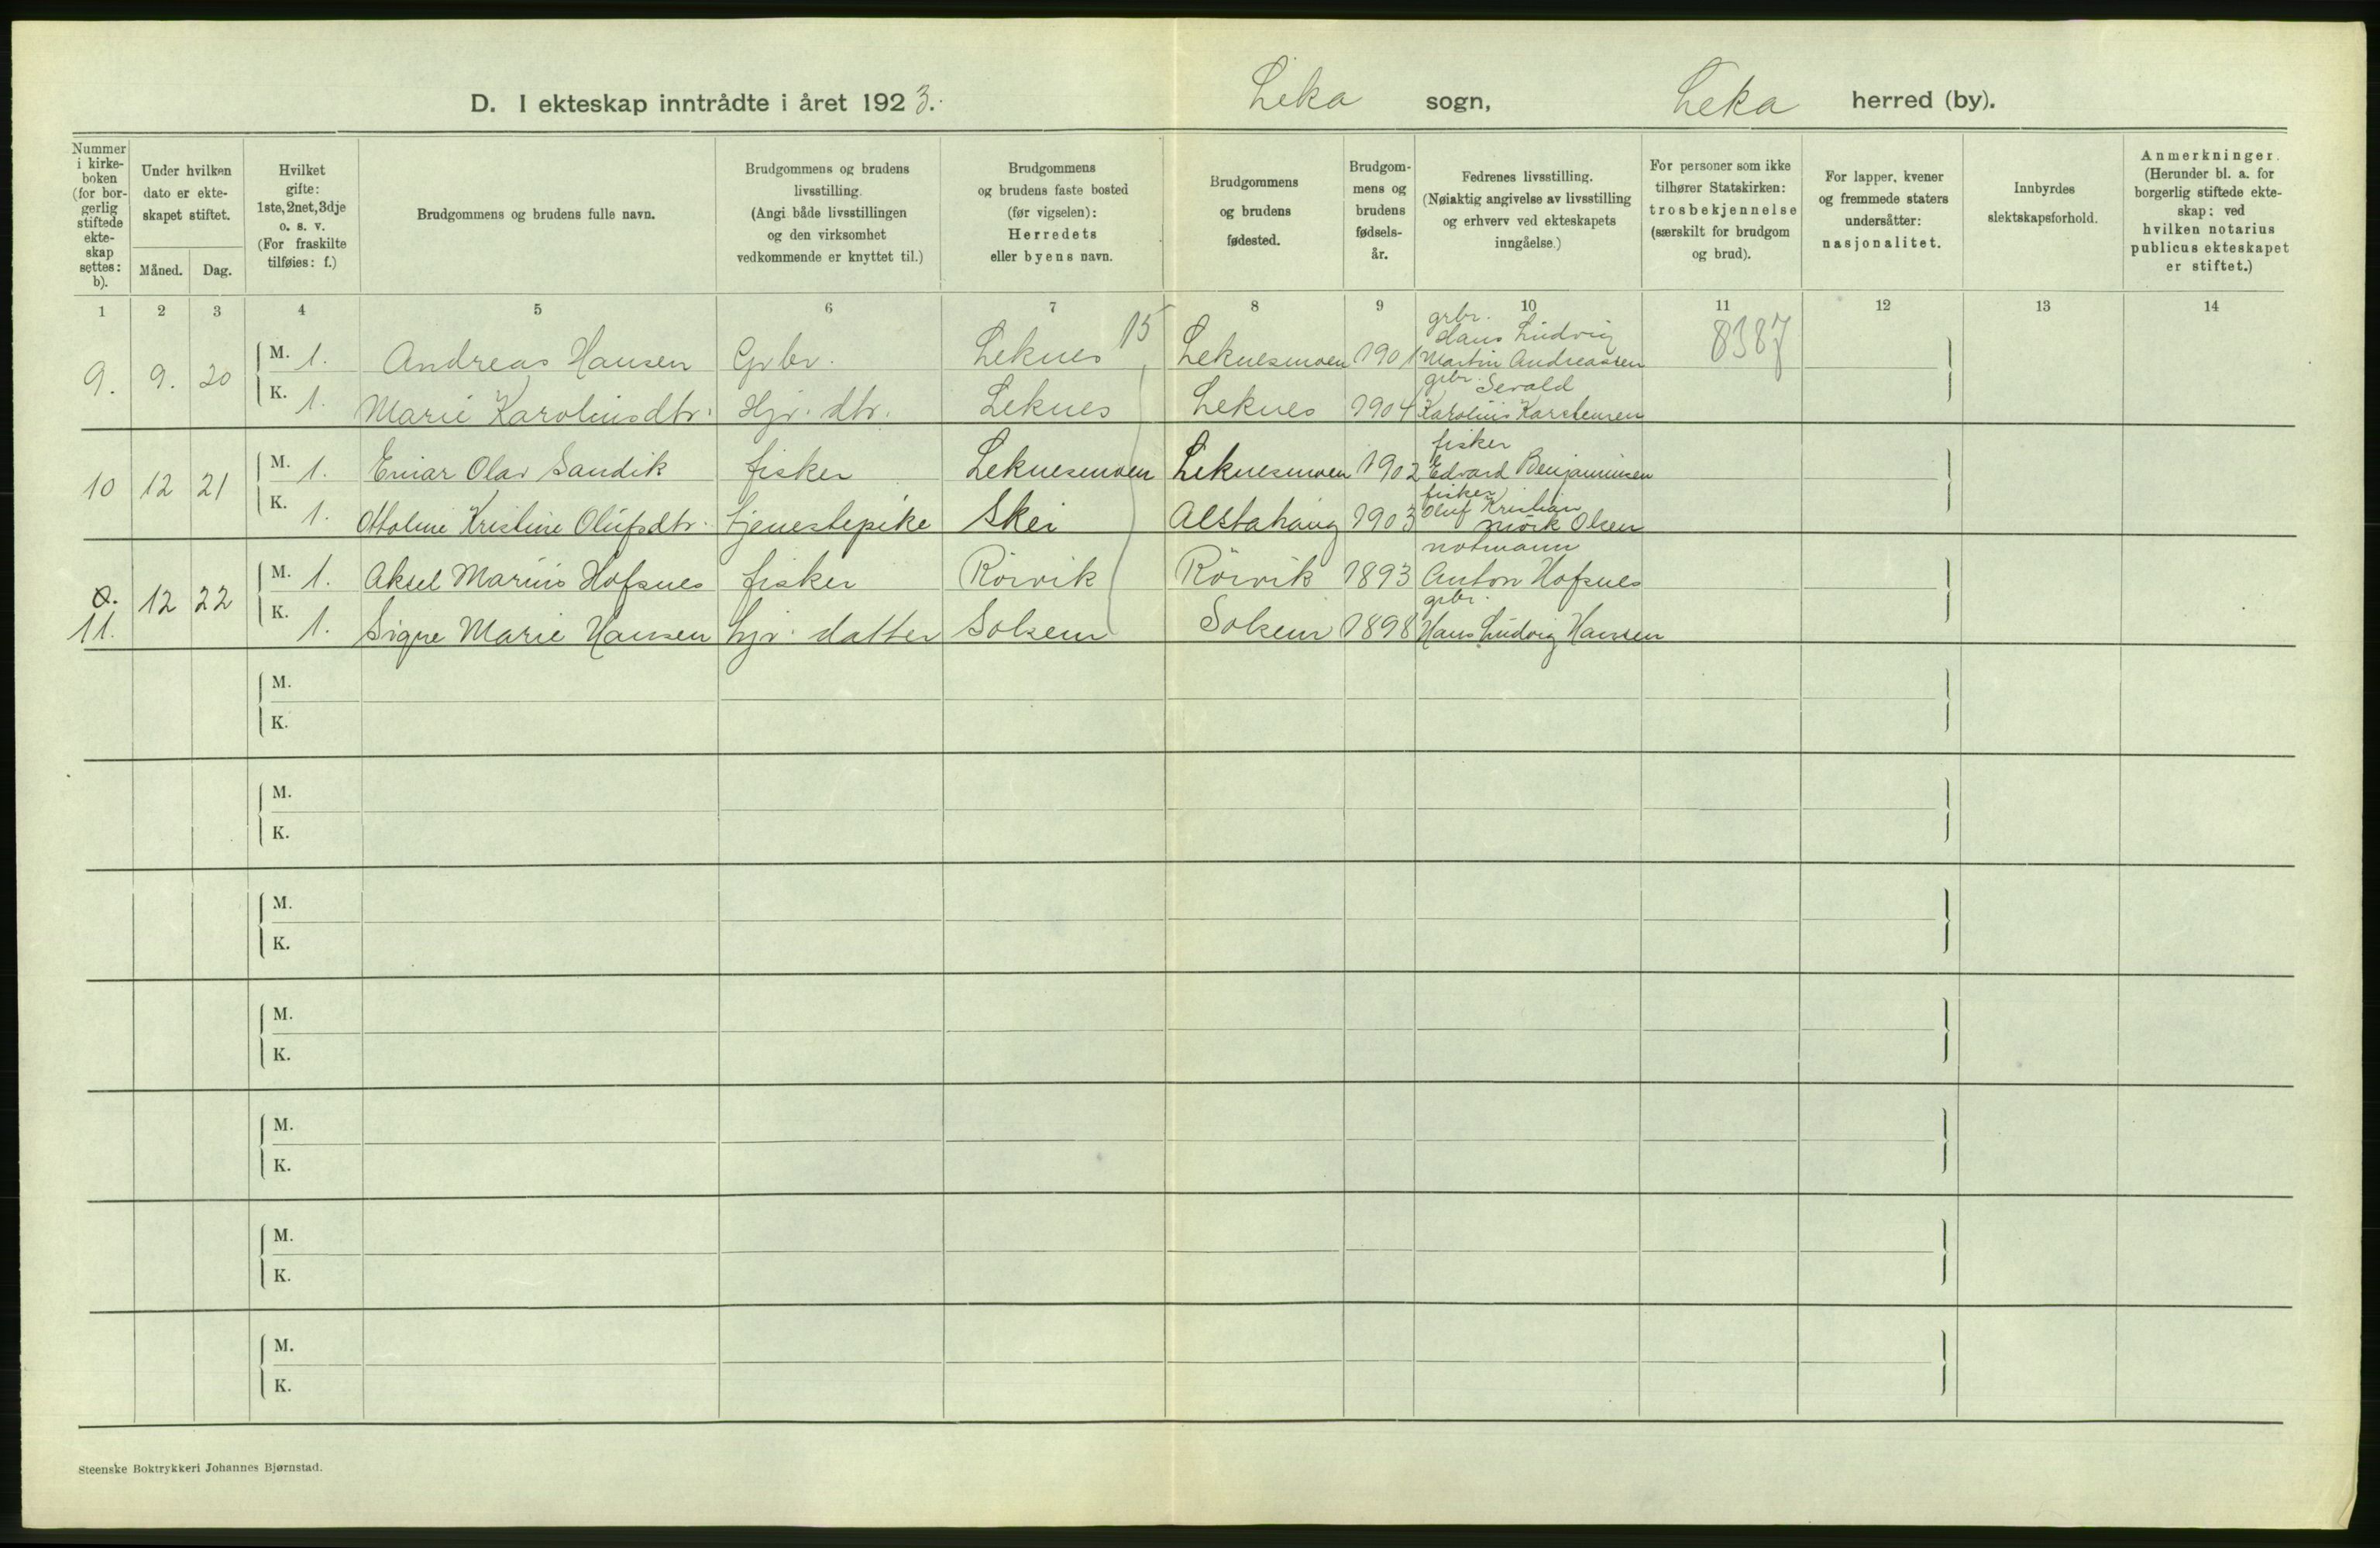 D. I ekteskap inntrådte i året 1923. Leka sogn, Leka herred (by).
Nummer i kirke-boken (for bor-gerlig stiftede ekte-skap settes: b).
Under hvilken dato er ekte-skapet stiftet.
Måned. Dag.
Hvilket gifte: 1ste, 2net, 3dje o. s. v. (For fraskilte tilføies: f.)
Brudgommens og brudens fulle navn.
Brudgommens og brudens livsstilling. (Angi både livsstillingen og den virksomhet vedkommende er knyttet til.)
Brudgommens og brudens faste bosted (før vigselen): Herredets eller byens navn.
Brudgommens og brudens fødested.
Brudgom-mens og brudens fødsels-år.
Fedrenes livsstilling. (Nøiaktig angivelse av livsstilling og erhverv ved ekteskapets inngåelse.)
For personer som ikke tilhører Statskirken: trosbekjennelse (særskilt for brudgom og brud).
For lapper, kvener og fremmede staters undersåtter: nasjonalitet.
Innbyrdes slektskapsforhold.
Anmerkninger. (Herunder bl. a. for borgerlig stiftede ekte-skap: ved hvilken notarius publicus ekteskapet er stiftet.)
1 2 3 4 5 6 7 8 9 10 11 12 13 14
15 8387
9. 9. 20
M. 1. Andreas Hansen Grbr. Leknes Leknesmoen 1901 grbr. Hans Ludvig Martin Andreassen
K. 1. Marie Karolinsdtr. Hjv. dtr. Leknes Leknes 1904 grbr. Sevald Karolius Karstensen
10 12 21
M. 1. Einar Olav Sandik fisker Leknesmoen Leknesmoen 1902 fisker Edvard Benjaminsen
K. 1. Ottoline Kristine Olufsdtr. tjenestepike Skei Alstahaug 1903 fisker Oluf Kristian Mörk Olsen
11. 12 22
M. 1. Aksel Marius Hofsnes fisker Rörvik Rörvik 1893 notmann Anton Hofsnes
K. 1. Signe Marie Hansen hjv. datter Solsem Solsem 1898 grbr. Hans Ludvig Hansen
M.
K.
M.
K.
M.
K.
M.
K.
M.
K.
M.
K.
M.
K.
Steenske Boktrykkeri Johannes Bjørnstad.